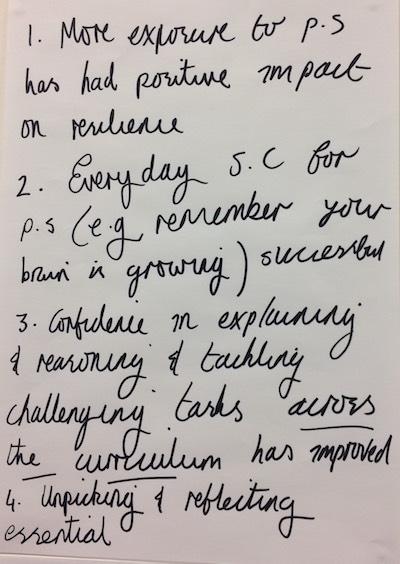 1. More exposure to p.s
has had positive impact
on resilience
2. Everyday S.C for
p.s (e.g remember your
brain is growing) successful
3. Confidence in explaining
& reasoning & tackling
challenging tasks across
the curriculum has improved
4. Unpicking & reflecting
essential